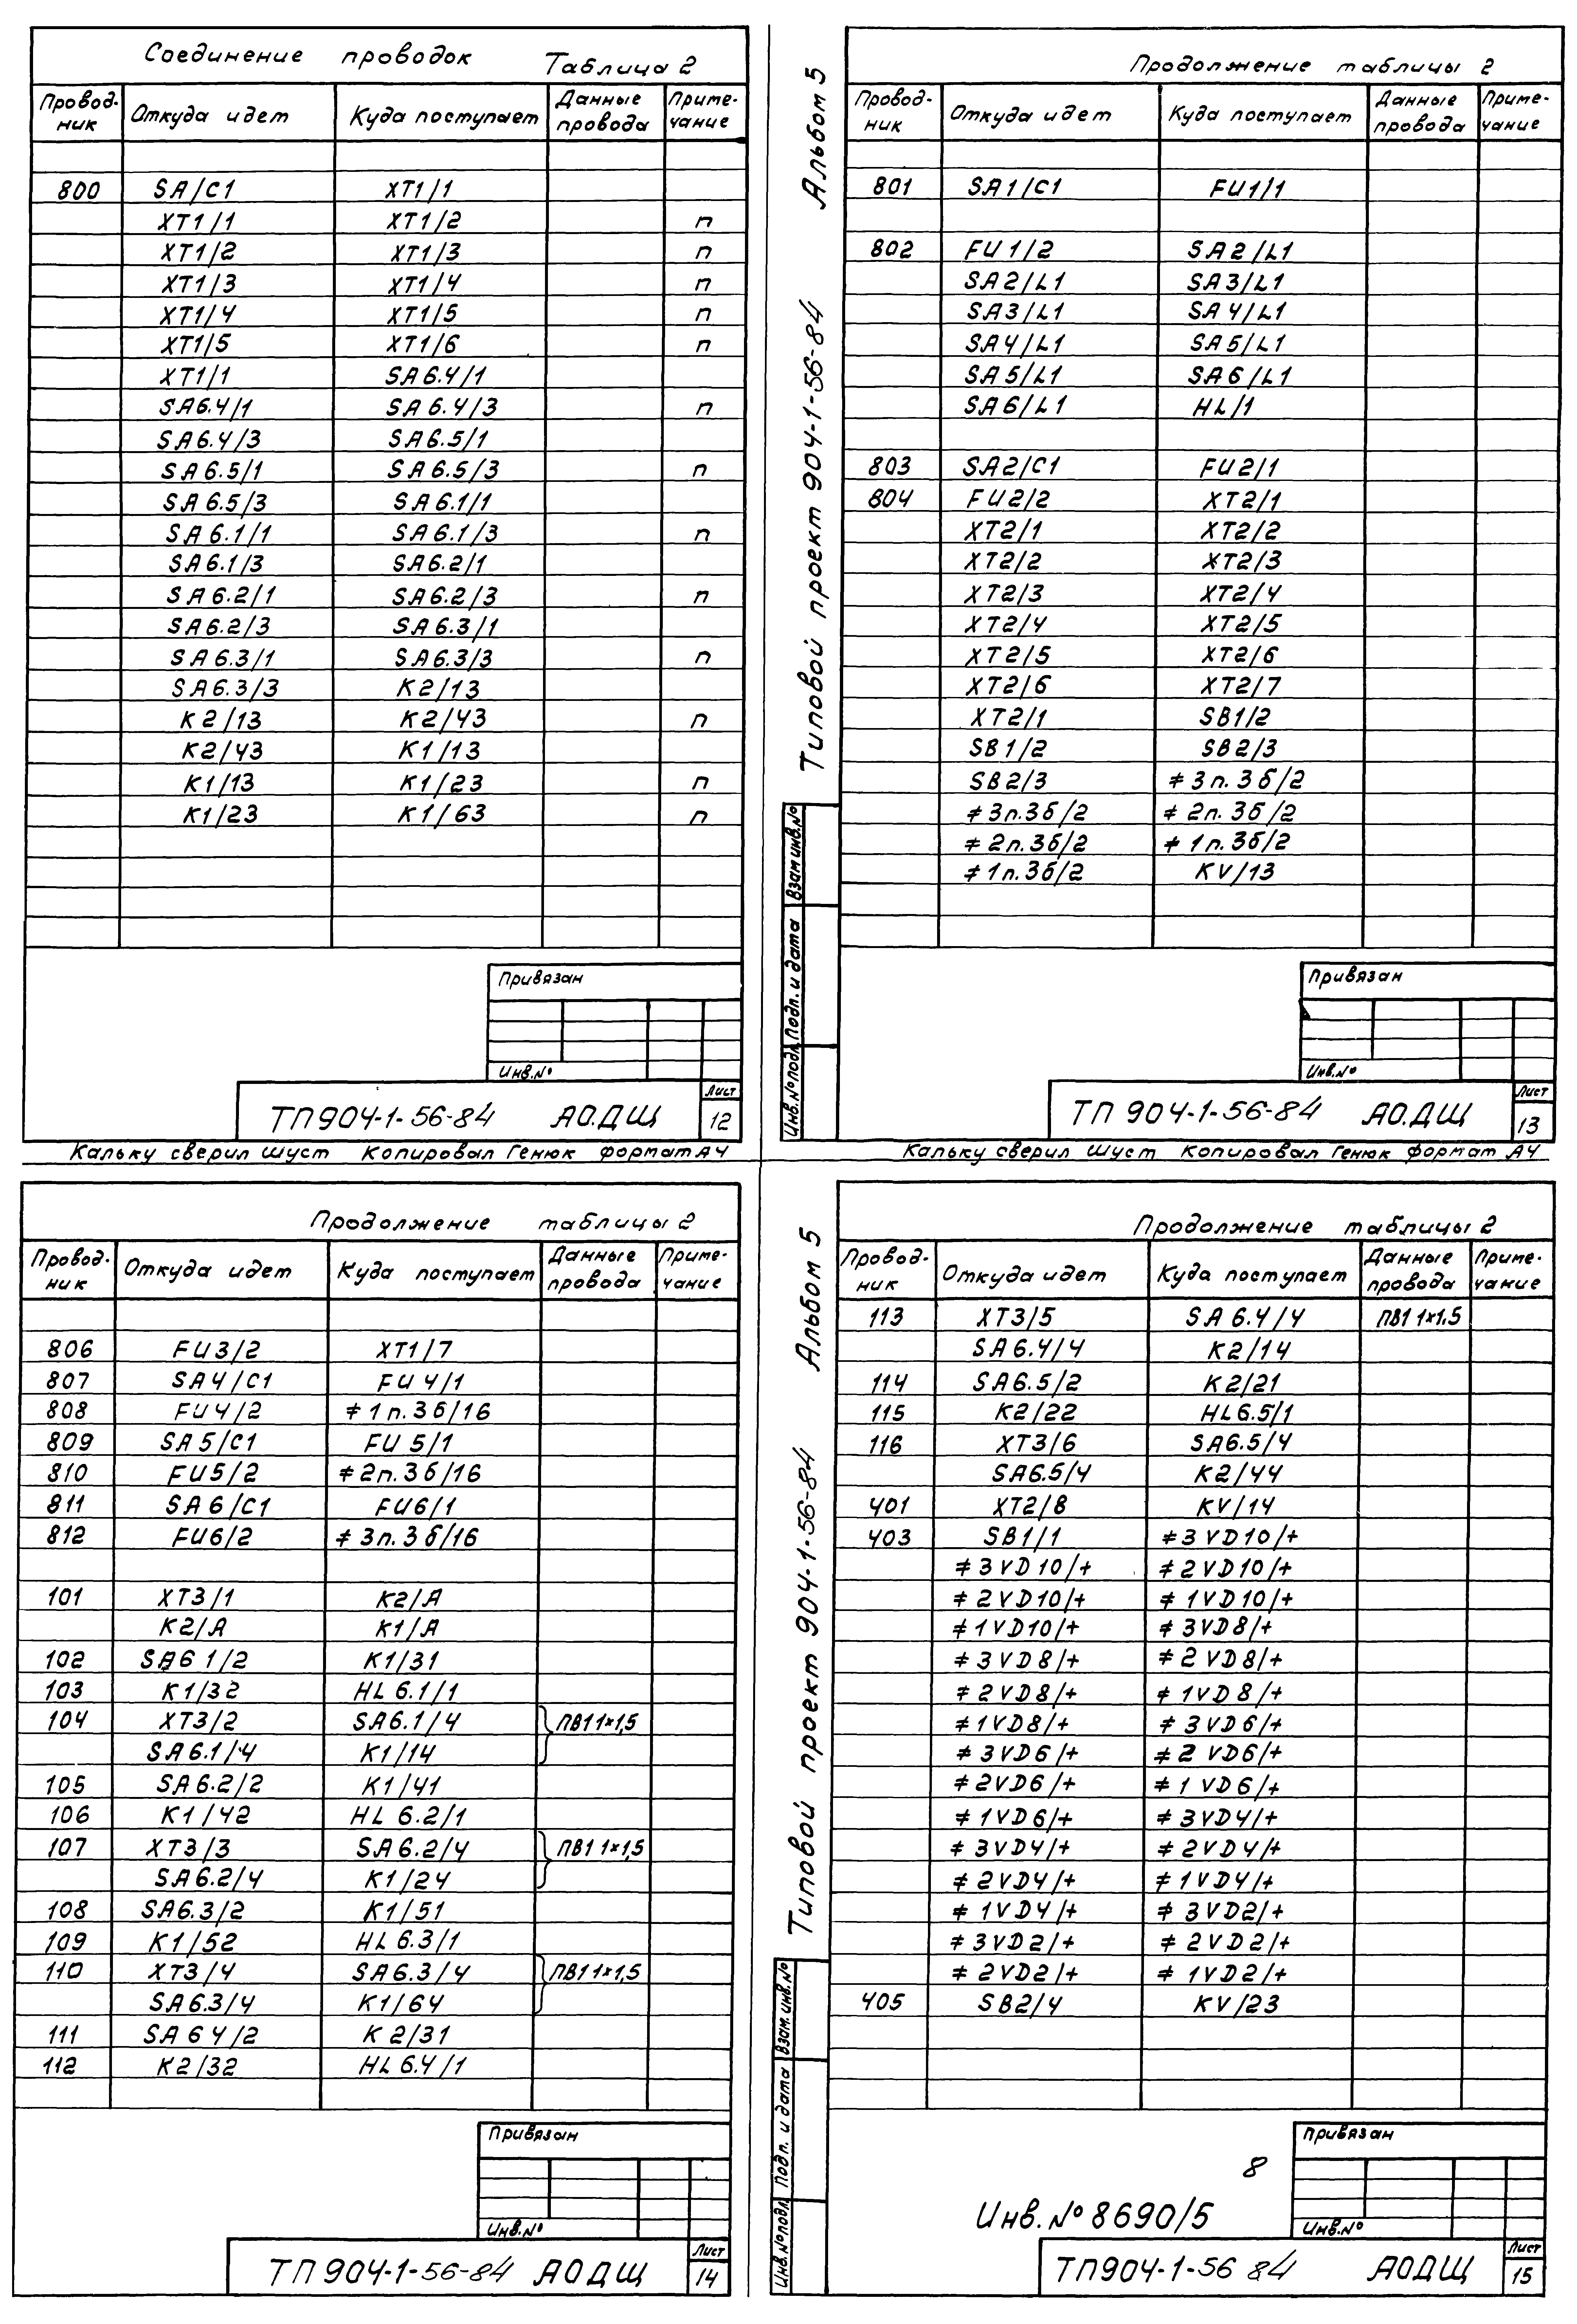 Соединение проводок Таблица 2
Провод-ник Откуда идет Куда поступает Данные провода Приме-чание
800 SA/C1 XT1/1
XT1/1 XT1/2 п
XT1/2 XT1/3 п
XT1/3 XT1/4 п
XT1/4 XT1/5 п
XT1/5 XT1/6 п
XT1/1 SA6.4/1
SA6.4/1 SA6.4/3 п
SA6.4/3 SA6.5/1
SA6.5/1 SA6.5/3 п
SA6.5/3 SA6.1/1
SA6.1/1 SA6.1/3 п
SA6.1/3 SA6.2/1
SA6.2/1 SA6.2/3 п
SA6.2/3 SA6.3/1
SA6.3/1 SA6.3/3 п
SA6.3/3 K2/13
K2/13 K2/43 п
K2/43 K1/13
K1/13 K1/23 п
K1/23 K1/63 п
Привязан
Инв.№
ТП904-1-56-84 АО.ДЩ
Лист
12
Кальку сверил Шуст Копировал Генюк формат А4
Альбом 5
Типовой проект 904-1-56-84
Взам инв.№
Подп. и дата
Инв.№подл.
Продолжение таблицы 2
Провод-ник Откуда идет Куда поступает Данные провода Приме-чание
801 SA1/C1 FU1/1
802 FU1/2 SA2/L1
SA2/L1 SA3/L1
SA3/L1 SA4/L1
SA4/L1 SA5/L1
SA5/L1 SA6/L1
SA6/L1 HL/1
803 SA2/C1 FU2/1
804 FU2/2 XT2/1
XT2/1 XT2/2
XT2/2 XT2/3
XT2/3 XT2/4
XT2/4 XT2/5
XT2/5 XT2/6
XT2/6 XT2/7
XT2/1 SB1/2
SB1/2 SB2/3
SB2/3 ≠3п.3б/2
≠3п.3б/2 ≠2п.3б/2
≠2п.3б/2 ≠1п.3б/2
≠1п.3б/2 KV/13
Привязан
Инв.№
ТП 904-1-56-84 АО.ДЩ
Лист
13
Кальку сверил Шуст Копировал Генюк формат А4
Продолжение таблицы 2
Провод-ник Откуда идет Куда поступает Данные провода Приме-чание
806 FU3/2 XT1/7
807 SA4/C1 FU4/1
808 FU4/2 ≠1п.3б/16
809 SA5/C1 FU5/1
810 FU5/2 ≠2п.3б/16
811 SA6/C1 FU6/1
812 FU6/2 ≠3п.3б/16
101 XT3/1 K2/A
K2/A K1/A
102 SA6 1/2 K1/31
103 K1/32 HL6.1/1
104 XT3/2 SA6.1/4 ПВ1 1×1,5
SA6.1/4 K1/14
105 SA6.2/2 K1/41
106 K1/42 HL6.2/1
107 XT3/3 SA6.2/4 ПВ1 1×1,5
SA6.2/4 K1/24
108 SA6.3/2 K1/51
109 K1/52 HL6.3/1
110 XT3/4 SA6.3/4 ПВ1 1×1,5
SA6.3/4 K1/64
111 SA6 4/2 K2/31
112 K2/32 HL6.4/1
Привязан
Инв.№
ТП904-1-56-84 АОДЩ
Лист
14
Альбом 5
Типовой проект 904-1-56-84
Взам.инв.№
Подп. и дата
Инв.№подл.
Продолжение таблицы 2
Провод-ник Откуда идет Куда поступает Данные провода Приме-чание
113 XT3/5 SA6.4/4 ПВ1 1×1.5
SA6.4/4 K2/14
114 SA6.5/2 K2/21
115 K2/22 HL6.5/1
116 XT3/6 SA6.5/4
SA6.5/4 K2/44
401 XT2/8 KV/14
403 SB1/1 ≠3VD10/+
≠3VD10/+ ≠2VD10/+
≠2VD10/+ ≠1VD10/+
≠1VD10/+ ≠3VD8/+
≠3VD8/+ ≠2VD8/+
≠2VD8/+ ≠1VD8/+
≠1VD8/+ ≠3VD6/+
≠3VD6/+ ≠2VD6/+
≠2VD6/+ ≠1VD6/+
≠1VD6/+ ≠3VD4/+
≠3VD4/+ ≠2VD4/+
≠2VD4/+ ≠1VD4/+
≠1VD4/+ ≠3VD2/+
≠3VD2/+ ≠2VD2/+
≠2VD2/+ ≠1VD2/+
405 SB2/4 KV/23
8
Инв.№8690/5
Привязан
Инв.№
ТП904-1-56 84 АОДЩ
Лист
15